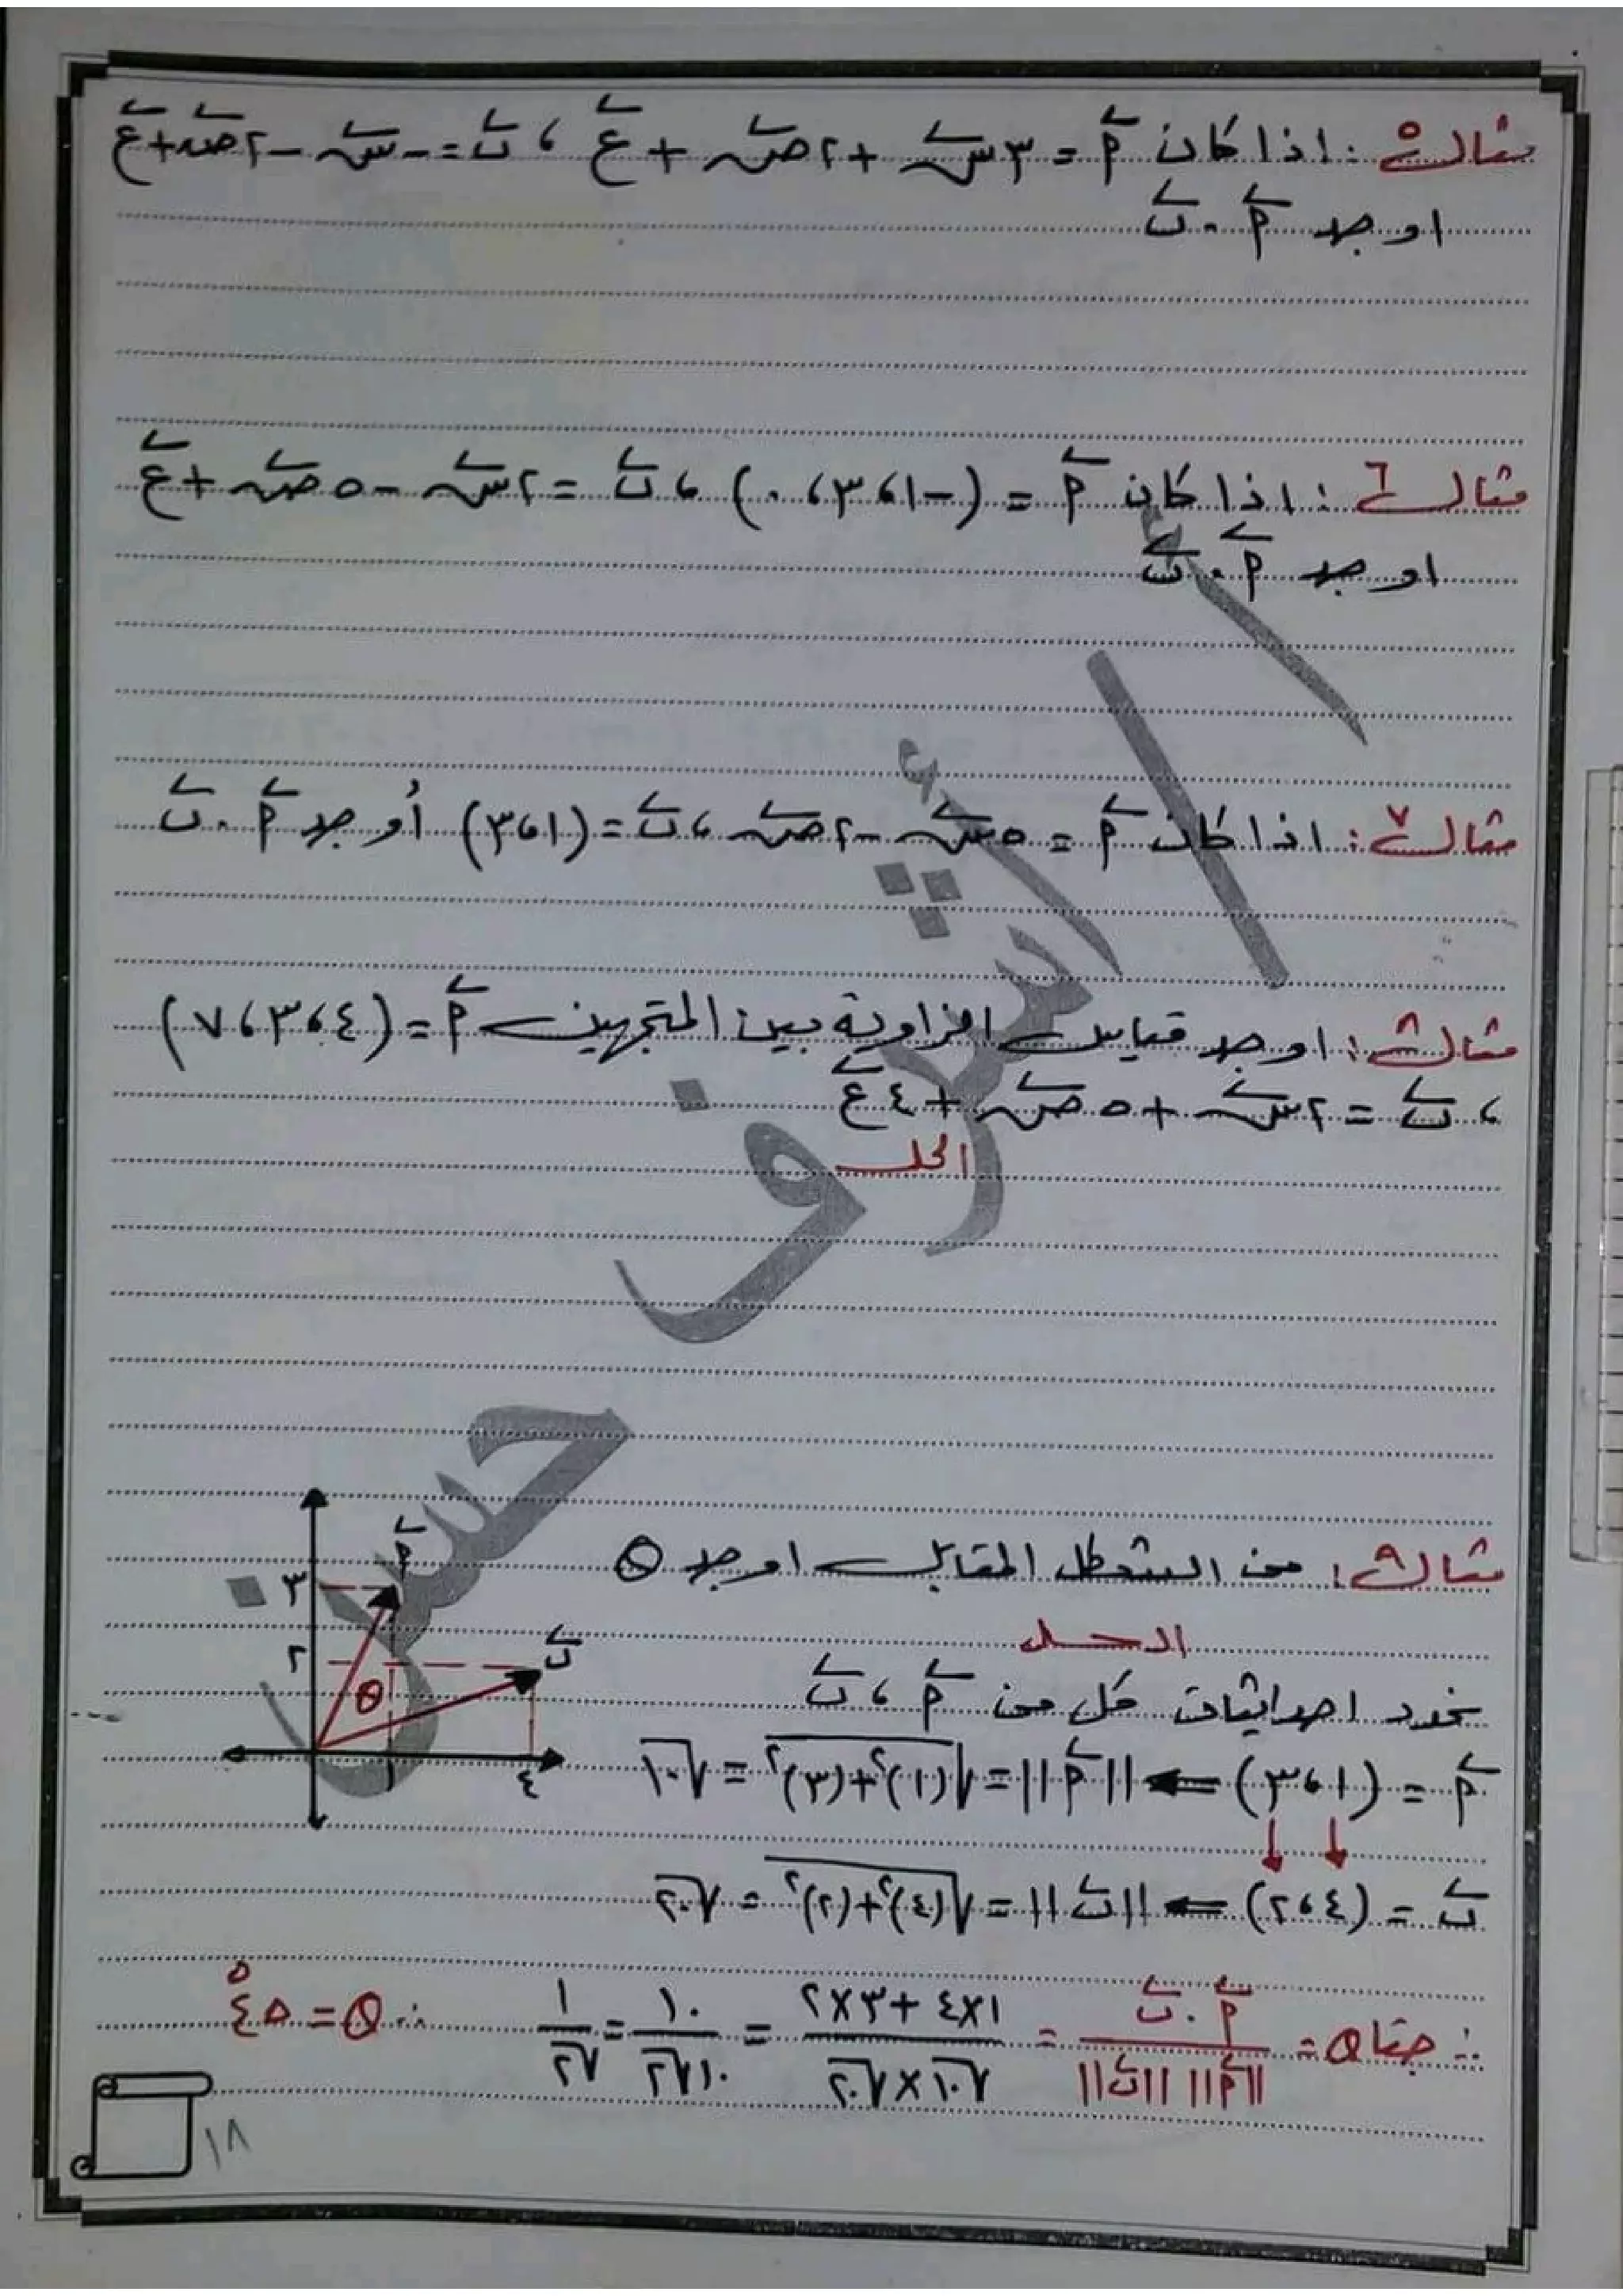 مثال ٥ : اذا كان أ = ٣س + ٢ص + ع ، ب = -س - ٢ص + ع
اوجد أ . ب
مثال ٦ : اذا كان أ = (-١، ٣، ٠) ، ب = ٢س - ٥ص + ع
اوجد أ . ب
مثال ٧ : اذا كان أ = ٥س - ٢ص ، ب = (١، ٣) أوجد أ . ب
مثال ٨ : اوجد قياس الزاوية بين المتجهين أ = (٤، ٣، ٧)
، ب = ٢س + ٥ص + ٤ع
الحل
مثال ٩ : من الشكل المقابل اوجد θ
الحل
نحدد احداثيات كل من أ ، ب
أ = (١، ٣) ⇐ ||أ|| = √(١)²+(٣)² = √١٠
ب = (٤، ٢) ⇐ ||ب|| = √(٤)²+(٢)² = √٢٠
∴ جتا θ = أ . ب / ||أ|| ||ب|| = ١×٤ + ٣×٢ / √١٠ × √٢٠ = ١٠ / ١٠√٢ = ١ / √٢ ∴ θ = ٤٥°
أ
٣
٢
ب
θ
١
٤
١٨
أ / أشرف حسن